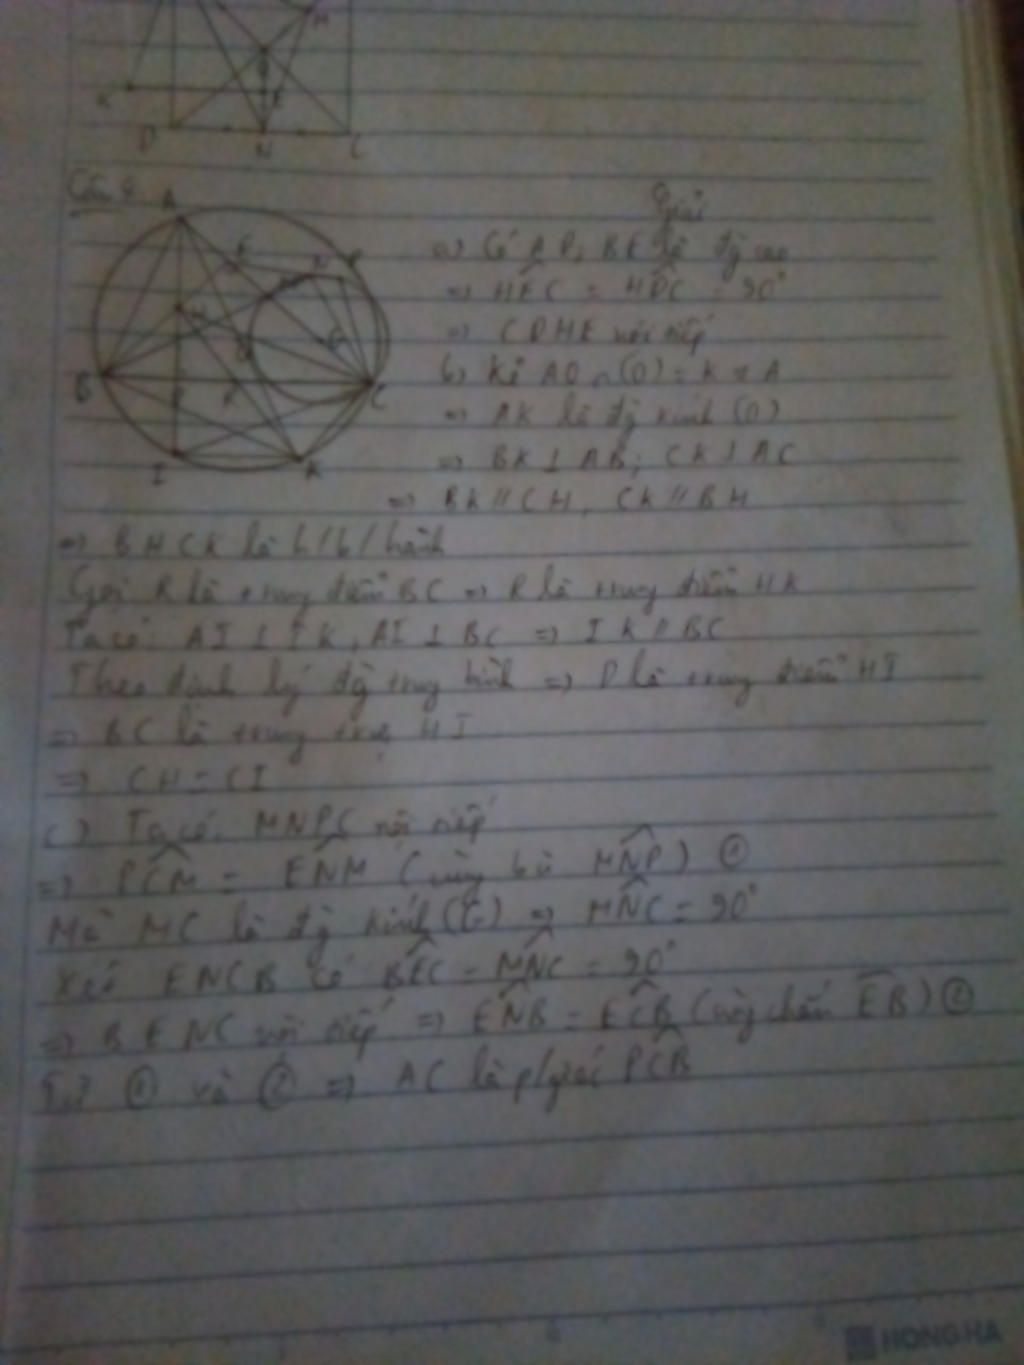 K
D N C
Câu 4
A
E N P
H
G
B C
I K
Giải
a) Có AD, BE là đg cao
=> HEC = HDC = 90°
=> CDHE nội tiếp
b) Kẻ AO ∩ (O) = K ≠ A
=> AK là đg kính (O)
=> BK ⊥ AB; CK ⊥ AC
=> BK // CH, CK // BH
=> BHCK là h/b/hành
Gọi R là trung điểm BC => R là trung điểm HK
Ta có: AI ⊥ IK, AI ⊥ BC => IK // BC
Theo định lý đg trung bình => D là trung điểm HI
=> BC là trung trực HI
=> CH = CI
c) Ta có: MNPC nội tiếp
=> PCM = ENM (cùng bù MNP) ①
Mà MC là đg kính (G) => MNC = 90°
Xét ENCB có BEC = MNC = 90°
=> BENC nội tiếp => ENB = ECB (cùng chắn EB) ②
Từ ① và ② => AC là p/giác PCB
HONG HA